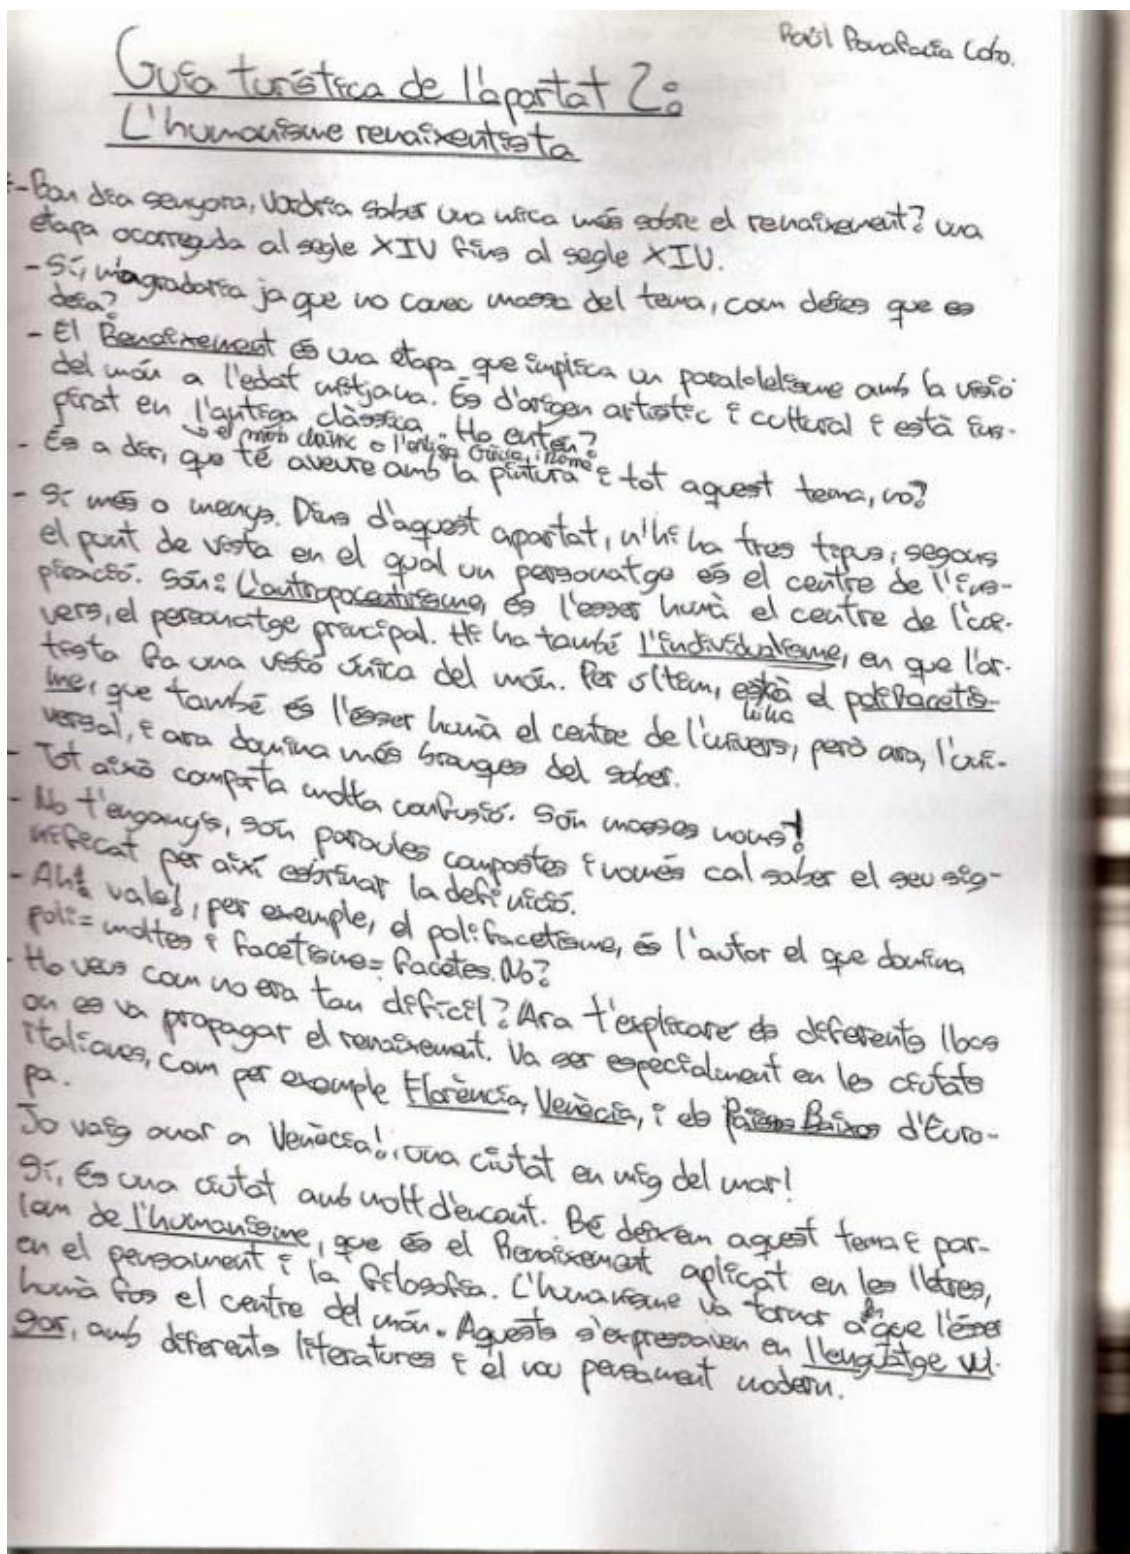 Raül Bonafacia Coto.
Guia turística de l'apartat 2:
L'humanisme renaixentista
- Bon dia senyora, Voldria saber una mica més sobre el renaixement? una
etapa ocorreguda al segle XIV fins al segle XIV.
- Sí, m'agradaria ja que no conec massa del tema, com deies que es
deia?
- El Renaixement és una etapa que implica un paral·lelisme amb la visió
del món a l'edat mitjana. És d'origen artístic i cultural i està ins-
pirat en l'antiga clàssica. Ho entén?
→ el món clàssic o l'antiga Grècia, i Roma
- És a dir, que té aveure amb la pintura i tot aquest tema, no?
- Sí més o menys. Dins d'aquest apartat, n'hi ha tres tipus, segons
el punt de vista en el qual un personatge és el centre de l'ins-
piració. Són: L'antropocentrisme, és l'esser humà el centre de l'
vers, el personatge principal. Hi ha també l'individualisme, en que l'ar-
tista fa una visió única del món. Per últim, està el polifacetis-
hi ha
me, que també és l'esser humà el centre de l'univers, però ara, l'uni-
versal, i ara domina més branques del saber.
- Tot això comporta molta confusió. Són masses noms!
- No t'enganyis, són paraules compostes i només cal saber el seu sig-
nificat per així esbrinar la definició.
- Ah! vale!, per exemple, el polifacetisme, és l'autor el que domina
poli= moltes i facetisme= facetes. No?
- Ho veus com no era tan difícil? Ara t'explicaré els diferents llocs
on es va propagar el renaixement. Va ser especialment en les ciutats
italianes, com per exemple Florència, Venècia, i els Països Baixos d'Euro-
pa.
Jo vaig anar a Venècia!, una ciutat en mig del mar!
Sí, és una ciutat amb molt d'encant. Bé deixem aquest tema i par-
lem de l'humanisme, que és el Renaixement aplicat en les lletres,
en el pensament i la filosofia. L'humanisme va tornar a fer que l'ésser
humà fos el centre del món. Aquests s'expressaven en llenguatge vul-
gar, amb diferents literatures i el nou pensament modern.